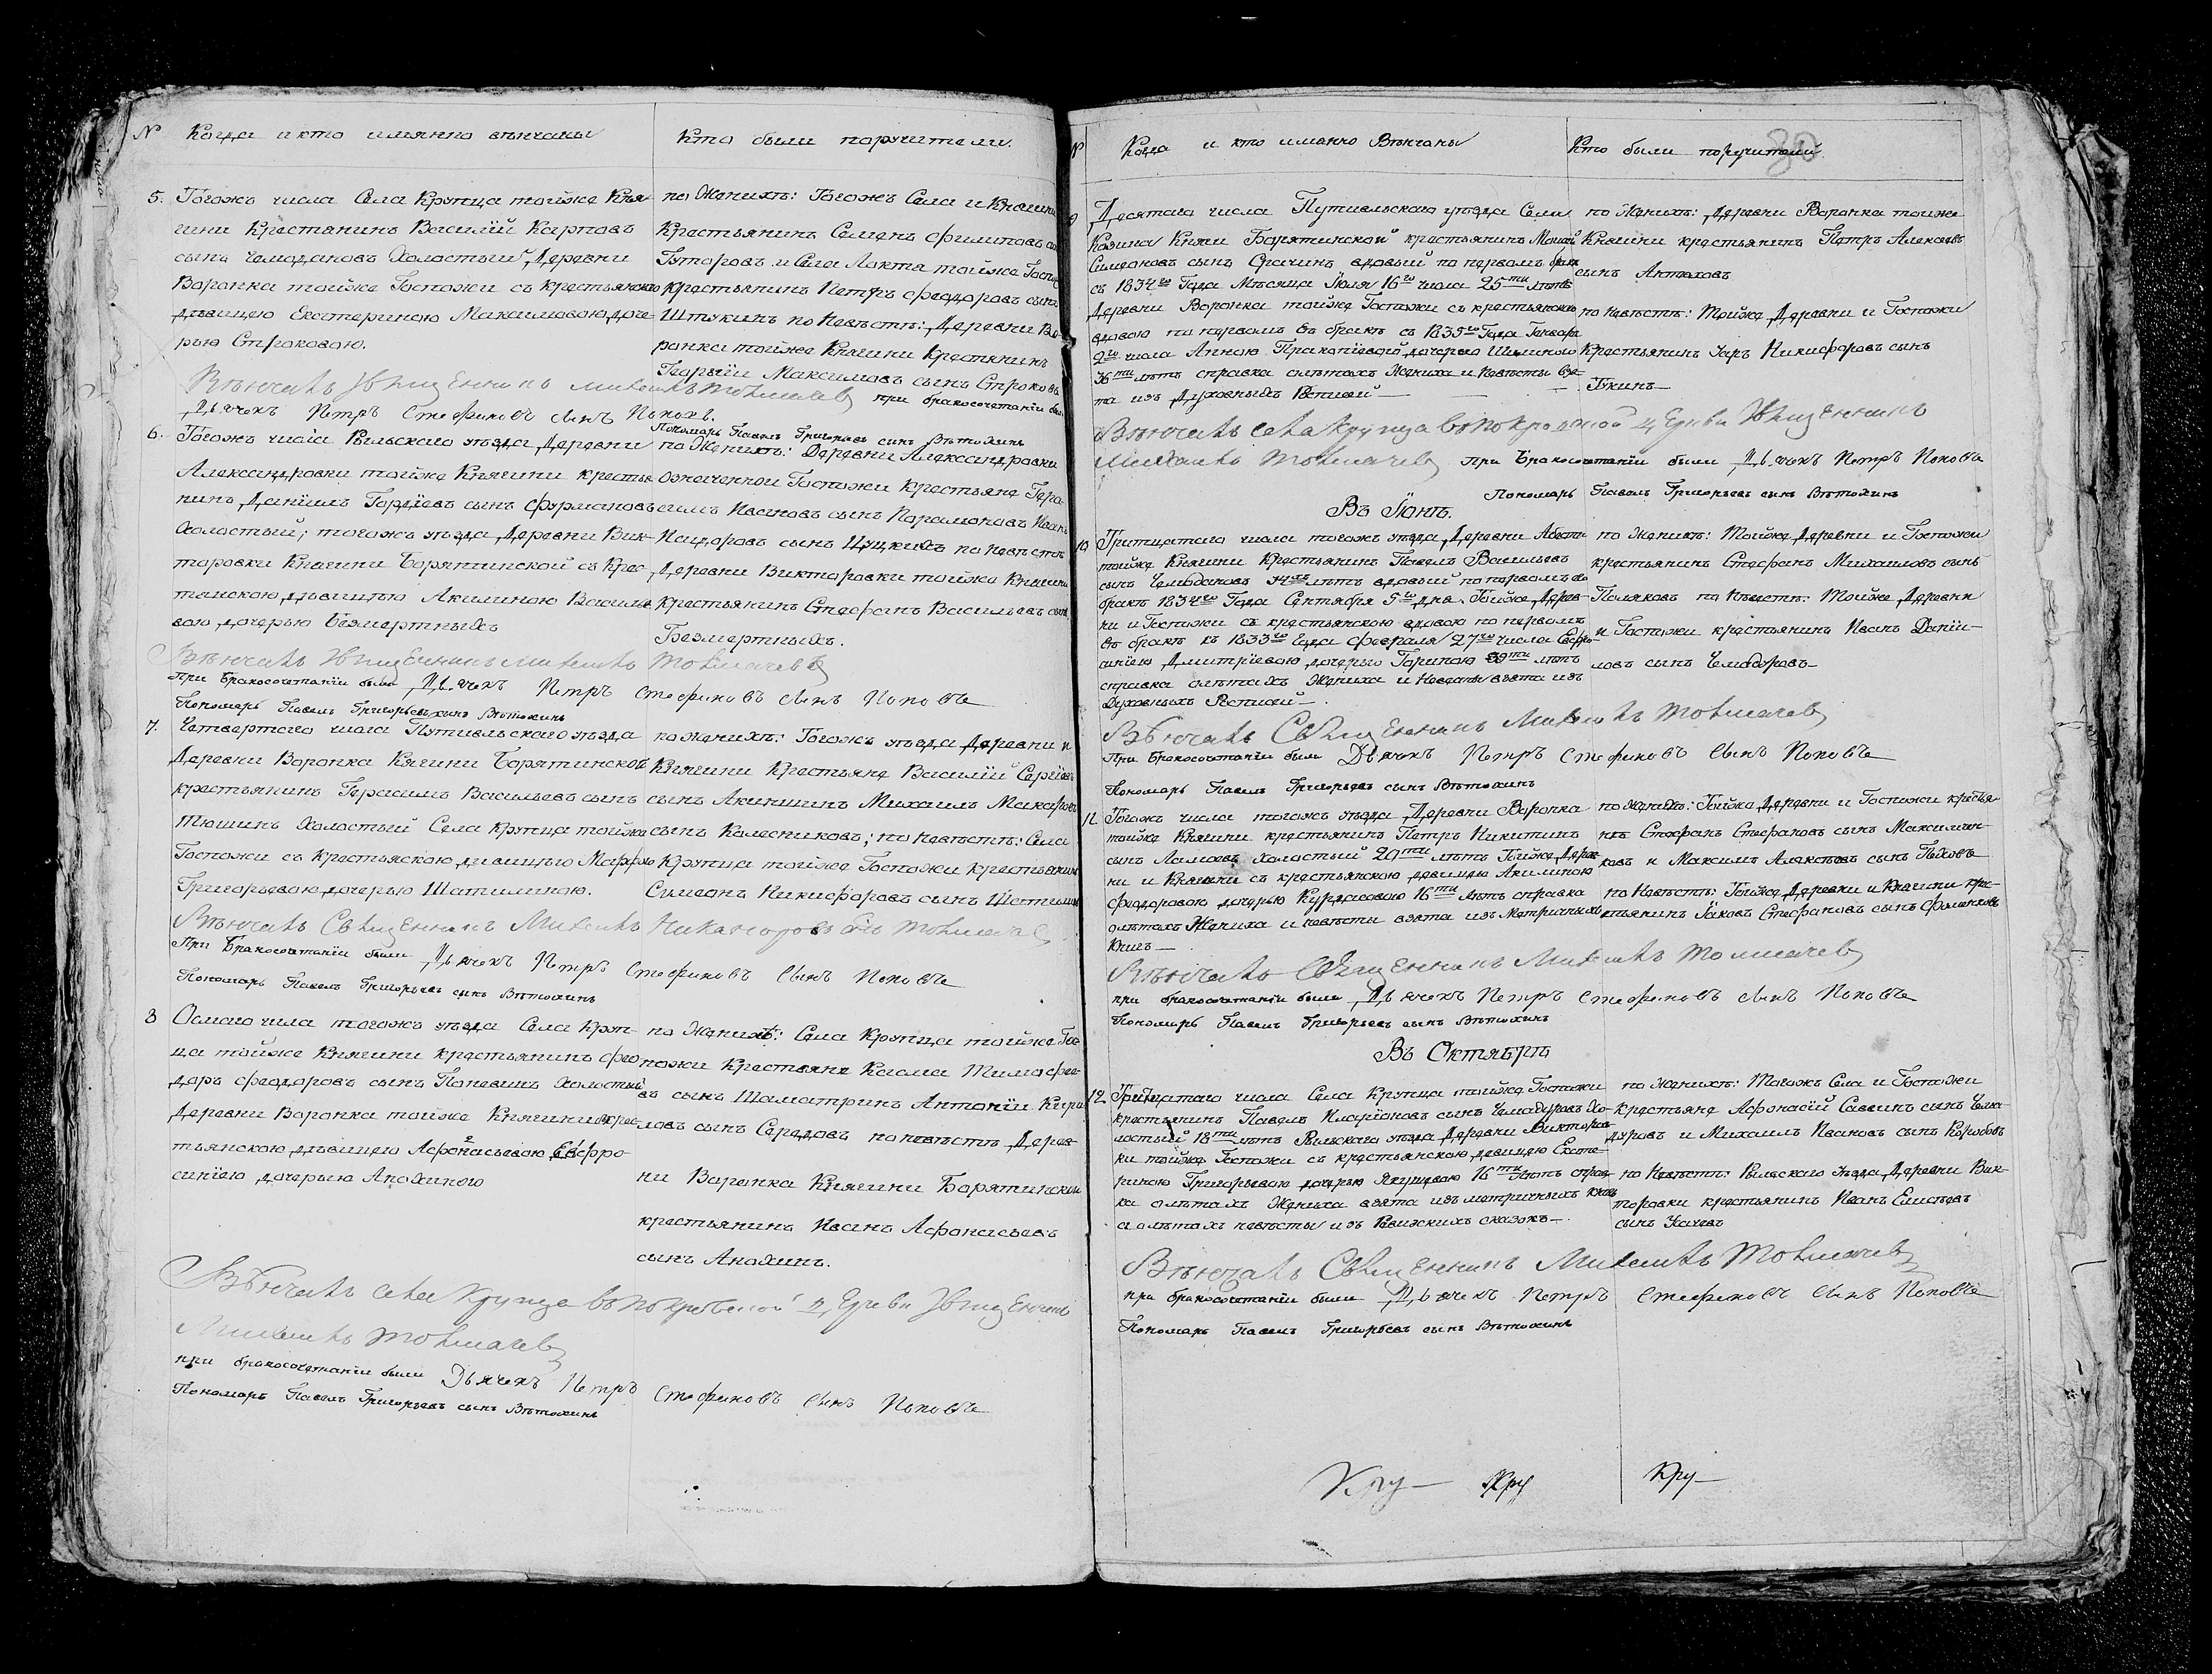 № Когда и кто имянно вѣнчаны
Кто были поручители.
5. Тогожъ числа Села Крупца тойже Кня-
гини Крестьянинъ Василій Карповъ
сынъ Чемодановъ Холостый, Деревни
Воронка тойже Госпожи съ крестьянскою
дѣвицею Екатериною Максимовою доче-
рью Строковою.
по Женихѣ: Тогожъ Села и Княгини
Крестьянинъ Семенъ Филиповъ
Гуторовъ и Села Локта тойже
Крестьянинъ Петръ Феодоровъ сынъ
Штукинъ по Невѣстѣ: Деревни Во-
ронка тойже Княгини Крестянинъ
Георгій Максимовъ сынъ Строковъ
Вѣнчалъ Священникъ Михаилъ Толмачевъ
при бракосочетаніи были
Дьячекъ Петръ Стефановъ сынъ Поповъ.
Пономарь Павелъ Григорьевъ сынъ Вѣтохинъ
6. Тогожъ числа Рыльскаго уѣзда Деревни
Александровки тойже Княгини кресть-
нинъ Даніилъ Гордѣевъ сынъ Фурмановъ
Холостый; тогожъ уѣзда Деревни Вик-
торовки Княгини Борятинской съ Крес-
тянскою дѣвицею Акилиною Василье-
вою дочерью Безмертныхъ
по Женихѣ: Деревни Александровки
означенной Госпожи Крестьяне Гера-
симъ Ивановъ сынъ Парамоновъ Иванъ
Исидоровъ сынъ Цуцкихъ по Невѣстѣ
Деревни Викторовки тойже Княгини
крестьянинъ Стефанъ Васильевъ сынъ
Безмертныхъ.
Вѣнчалъ Священникъ Михаилъ Толмачевъ
При бракосочетаніи были Дьячекъ Петръ Стефановъ сынъ Поповъ
Пономарь Павелъ Григорьевъ сынъ Вѣтохинъ
7. Четвертаго числа Путивльскаго уѣзда
Деревни Воронка Княгини Борятинской
крестьянинъ Герасимъ Васильевъ сынъ
Тюшинъ Холостый Села Крупца тойже
Госпожи съ крестьянскою дѣвицею Марфою
Григорьевою дочерью Шатилиною.
по женихѣ: Тогожъ уѣзда Деревни и
Княгини Крестьяне Василій Сергѣевъ
сынъ Акиншинъ Михаилъ Макаровъ
сынъ Колесниковъ; по Невѣстѣ: Села
Крупца тойже Госпожи крестьянинъ
Симеонъ Никифоровъ сынъ Шатилинъ
Вѣнчалъ Священникъ Михаилъ Никаноровъ сынъ Толмачевъ
При Бракосочетаніи были Дьячекъ Петръ Стефановъ сынъ Поповъ
Пономарь Павелъ Григорьевъ сынъ Вѣтохинъ
8 Осмаго чила тогожъ уѣзда Села Круп-
ца тойже Княгини крестьянинъ Фео-
доръ Феодоровъ сынъ Попевинъ Холостый
Деревни Воронка тойже Княгини съ крес-
тьянскою дѣвицею Афонасьевою Евфро-
синіею дочерью Анохиного
по Женихѣ: Села Крупца тойже Гос-
пожи Крестьяне Косма Тимофее-
въ сынъ Шаматринъ Антоній Кири-
ловъ сынъ Середовъ по невѣстѣ Дерев-
ни Воронка Княгини Борятинской
крестьянинъ Иванъ Афонасьевъ
сынъ Анохинъ.
Вѣнчалъ села Крупца въ Покровской Церкви Священникъ
Михаилъ Толмачевъ
при бракосочетаніи были Дьячекъ Петръ Стефановъ сынъ Поповъ
Пономарь Павелъ Григорьевъ сынъ Вѣтохинъ
№ Когда и кто имянно Вѣнчаны
Кто были поручители.
9 Десятаго числа Путивльскаго уѣзда Села
Козина Княги Борятинской крестьянинъ
Симеоновъ сынъ Срачинъ вдовый по первомъ бракѣ
съ 1834го Года Мѣсяца Іюля 16го числа 25ти лѣтъ
Деревни Воронка тойже Госпожи съ крестьянскою
вдовою по первомъ въ бракѣ съ 1835го Года Генваря
9го числа Анною Прокопіевой дочерью
36ти лѣтъ справка олѣтахъ Жениха и Невѣсты взя-
та изъ Духовныхъ Росписей—
по Женихѣ: Деревни Воронка тойже
Княгини крестьянинъ Петръ Алексѣевъ
сынъ Антоховъ
по Невѣстѣ: Тойже Деревни и Госпожи
Крестьянинъ Уаръ Никифоровъ сынъ
Гукинъ—
Вѣнчалъ села Крупца въ Покровской Церкви Священникъ
Михаилъ Толмачевъ при Бракосочетаніи были Дьячекъ Петръ Поповъ
Пономарь Павелъ Григорьевъ сынъ Вѣтохинъ
Въ Іюнѣ.
10 Тритцатаго числа тогожъ уѣзда Деревни
тойже Княгини Крестьянинъ Павелъ Васильевъ
сынъ Чемодановъ лѣтъ вдовый по первомъ въ
бракѣ 1834го Года Сентября 5го дня. Тойже Дерев-
ни и Госпожи съ крестьянскою вдовою по первомъ
въ бракѣ къ 1833го Года Февраля 27го числа Евфро-
синіею Дмитріевою дочерью 39ти лѣтъ
справка олѣтахъ Жениха и Невѣсты взята изъ
Духовныхъ Росписей—
по Женихѣ: Тойже Деревни и Госпожи
крестьянинъ Стефанъ Михаиловъ сынъ
Поляковъ по Невѣстѣ: Тойже Деревни
и Госпожи крестьянинъ Иванъ Даніи-
ловъ сынъ Чемодоровъ—
Вѣнчалъ Священникъ Михаилъ Толмачевъ
При Бракосочетаніи были Дьячекъ Петръ Стефановъ сынъ Поповъ
Пономарь Павелъ Григорьевъ сынъ Вѣтохинъ
11 Тогожъ числа тогожъ уѣзда Деревни Воронка
тойже Княгини крестьянинъ Петръ Никитинъ
сынъ Ламоевъ холостый 20ти лѣтъ Тойже Дерев-
ни и Княгини съ крестьянскою девицею Акилиною
Феодоровою дочерью Курдасовою 16ти лѣтъ справка
олѣтахъ Жениха и невѣсты взята изъ Метричныхъ
Книгъ—
по Женихѣ: Тойже Деревни и Госпожи крестья-
нѣ Стефанъ Стефановъ сынъ Максимен-
ковъ и Максимъ Алексѣевъ сынъ Пѣховъ
по Невѣстѣ: Тойже Деревни и Княгини кре-
стьянинъ Іаковъ Стефановъ сынъ Фоменковъ
Вѣнчалъ Священникъ Михаилъ Толмачевъ
при бракосочетаніи были Дьячекъ Петръ Стефановъ сынъ Поповъ
Пономарь Павелъ Григорьевъ сынъ Вѣтохинъ
Въ Октябрѣ
12 Тритцатаго числа Села Крупца тойже Госпожи
крестьянинъ Павелъ Иларіоновъ сынъ Чемодуровъ Хо-
лостый 18ти лѣтъ Рыльскаго уѣзда Деревни Викторов-
ки тойже Госпожи съ крестьянскою девицею Екате-
риною Григорьевою дочерью Якунцевою 16ти лѣтъ справ-
ка олѣтахъ Жениха взята изъ метричныхъ книгъ
а олѣтахъ невѣсты изъ Ревижкихъ сказокъ—
по Женихѣ: Тогожъ Села и Госпожи
крестьяне Афонасій Савинъ сынъ Чемо-
дуровъ и Михаилъ Ивановъ сынъ Коробовъ
по Невѣстѣ: Рыльскаго уѣзда Деревни Вик-
торовки крестьянинъ Иванъ Елисѣевъ
сынъ Усачевъ
Вѣнчалъ Священникъ Михаилъ Толмачевъ
при бракосочетаніи были Дьячекъ Петръ Стефановъ сынъ Поповъ
Пономарь Павелъ Григорьевъ сынъ Вѣтохинъ
Кру— Кру Кру—